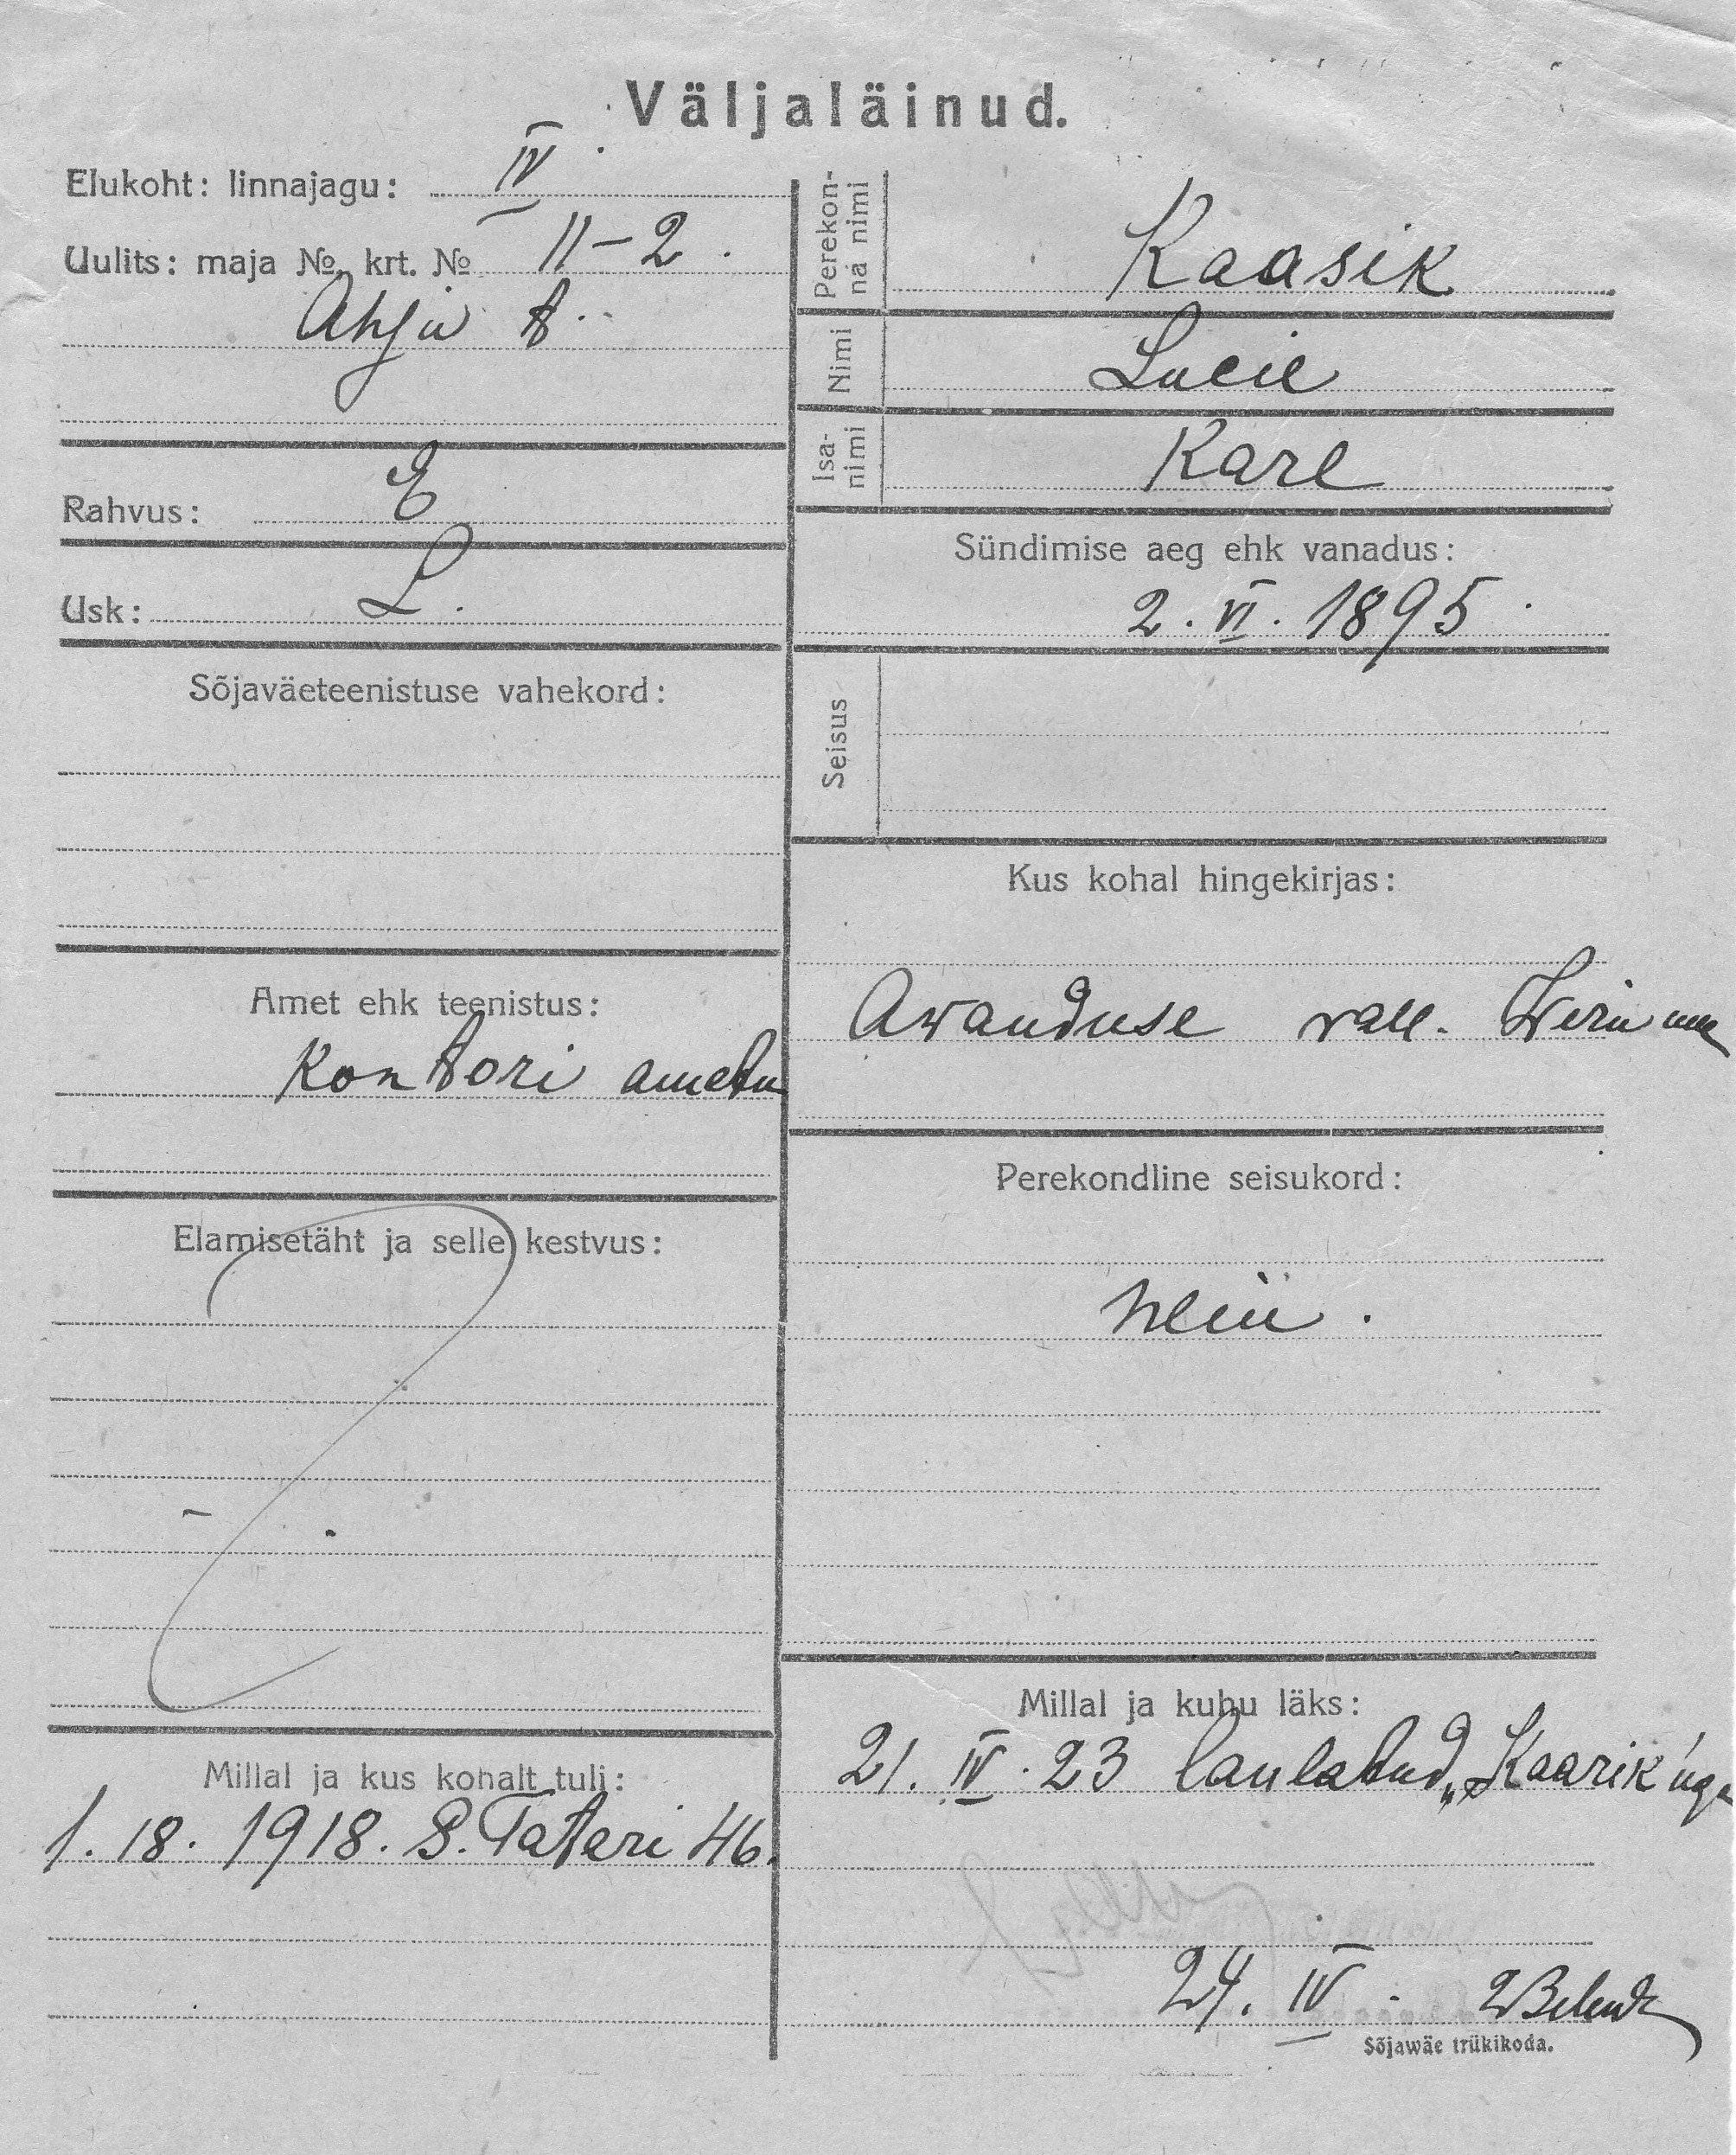 Väljaläinud.
Elukoht: linnajagu: IV
Uulits: maja № krt. № 11-2.
Ahju t.
Rahvus: E
Usk: L.
Sõjaväeteenistuse vahekord:
Amet ehk teenistus:
Kontori ametn
Elamisetäht ja selle kestvus:
Millal ja kus kohalt tuli:
1. 18. 1918. S. Tatari 46.
Perekonna nimi Kaasik
Nimi Lucie
Isanimi Karl
Sündimise aeg ehk vanadus:
2. VI. 1895.
Seisus
Kus kohal hingekirjas:
Awanduse vall. Wirum
Perekondline seisukord:
neiu.
Millal ja kuhu läks:
21. IV. 23 laulatud „Kaarik'uga
24. IV.
Sõjawäe trükikoda.